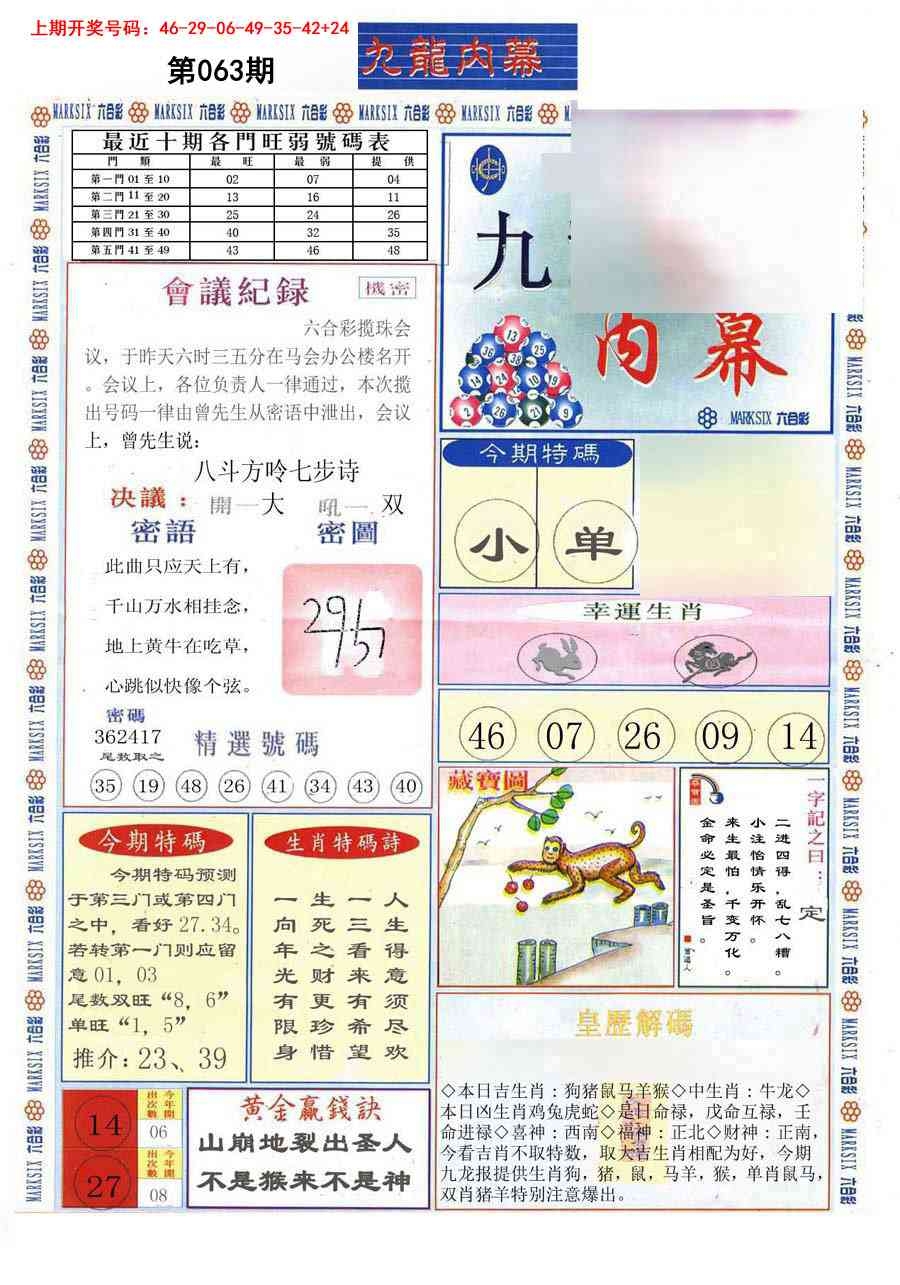 上期开奖号码：46-29-06-49-35-42+24
第063期
九龍内幕
MARKSIX 六合彩
最近十期各門旺弱號碼表
門 類 最 旺 最 弱 提 供
第一門 01 至 10 02 07 04
第二門 11 至 20 13 16 11
第三門 21 至 30 25 24 26
第四門 31 至 40 40 32 35
第五門 41 至 49 43 46 48
會議紀録
機密
六合彩揽珠会
议，于昨天六时三五分在马会办公楼名开
。会议上，各位负责人一律通过，本次揽
出号码一律由曾先生从密语中泄出，会议
上，曾先生说：
八斗方吟七步诗
决議：開一大 吼一双
密語
密圖
此曲只应天上有，
千山万水相挂念，
地上黄牛在吃草，
心跳似快像个弦。
密碼
362417
尾数取之
精選號碼
35 19 48 26 41 34 43 40
九
内幕
13
36 38 25
14 24 10 19
2 26 21 9
MARKSIX 六合彩
今期特碼
小 单
幸運生肖
46 07 26 09 14
藏寶圖
一字記之曰：定
二进四得，乱七八糟。
小注怡情乐开怀。
来生最怕，千变万化。
金命必定是圣旨。
今期特碼
今期特码预测
于第三门或第四门
之中，看好 27.34。
若转第一门则应留
意 01，03
尾数双旺“8，6”
单旺“1，5”
推介：23、39
生肖特碼詩
人生得意须尽欢
一三看来有希望
生死之财更珍惜
一向年光有限身
14
今年開出次數
06
27
今年開出次數
08
黄金赢錢訣
山崩地裂出圣人
不是猴来不是神
皇歷解碼
◇本日吉生肖：狗猪鼠马羊猴◇中生肖：牛龙◇
本日凶生肖鸡兔虎蛇◇是日命禄，戊命互禄，壬
命进禄◇喜神：西南◇福神：正北◇财神：正南，
今看吉肖不取特数，取大吉生肖相配为好，今期
九龙报提供生肖狗，猪，鼠，马羊，猴，单肖鼠马，
双肖猪羊特别注意爆出。